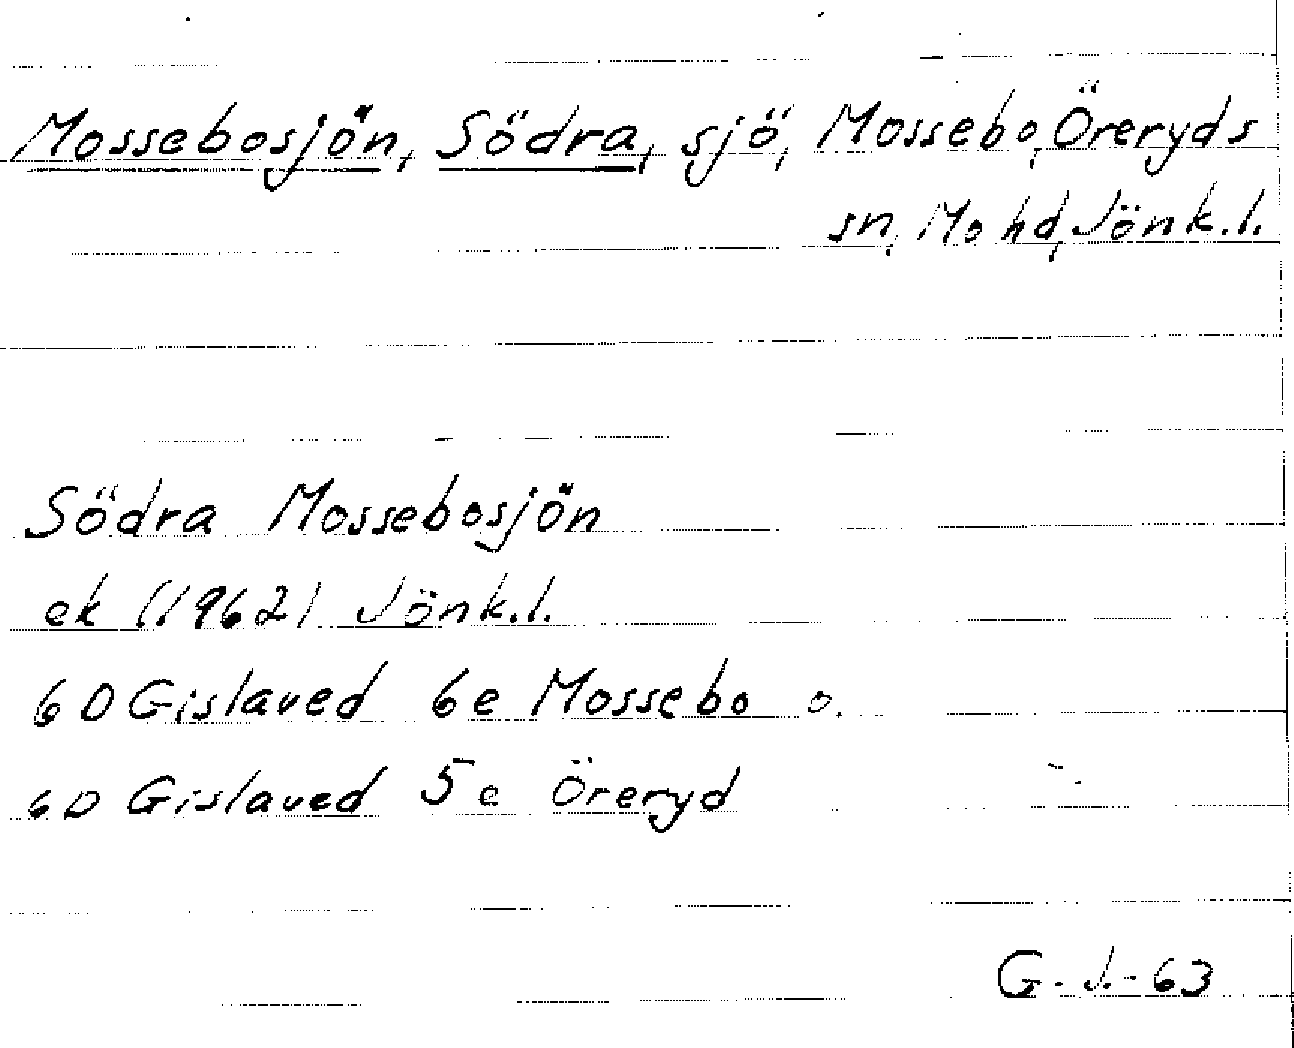 Mossebosjön, Södra, sjö, Mossebo, Öreryds
sn, Mo hd, Jönk.l.
Södra Mossebosjön
ek (1962) Jönk.l.
6D Gislaved 6e Mossebo o.
6D Gislaved 5e Öreryd
G. J. - 63